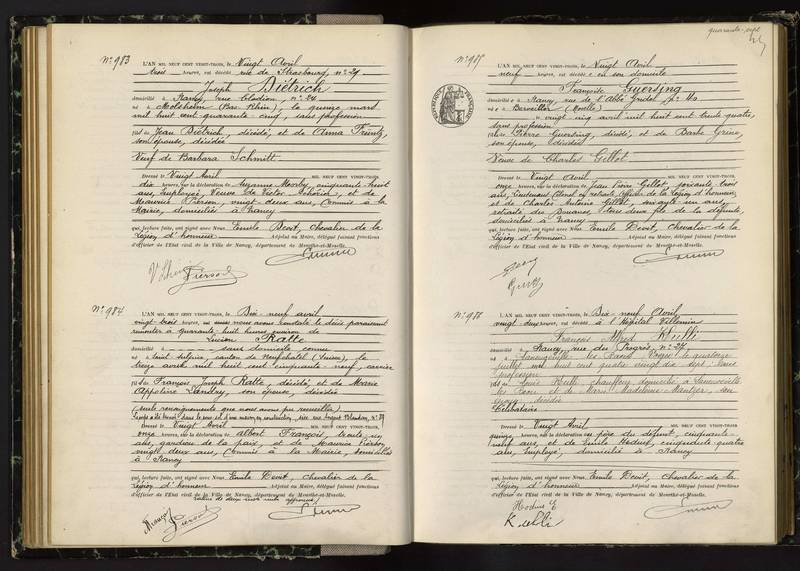 N° 983
L'AN MIL NEUF CENT VINGT-TROIS, le Vingt Avril
trois heures, est décédé rue de Strasbourg, n° 27
Joseph Dietrich
domicilié à Nancy, rue Clodion, n° 24
né à Molsheim (Bas Rhin), le quinze mars
mil huit cent quarante cinq, sans profession
fils de Jean Dietrich, décédé, et de Anna
son épouse, décédée
Veuf de Barbara Schmitt.
Dressé le Vingt Avril MIL NEUF CENT VINGT-TROIS,
dix heures, sur la déclaration de Suzanne cinquante huit
ans, employée, Veuve de Victor et de
Maurice Pierson, vingt deux ans, Commis à la
Mairie, domiciliés à Nancy
qui, lecture faite, ont signé avec Nous Emile Chevalier de la
Légion d'honneur Adjoint au Maire, délégué faisant fonctions
d'officier de l'Etat civil de la Ville de Nancy, département de Meurthe-et-Moselle.
Pierson
N° 984
L'AN MIL NEUF CENT VINGT-TROIS, le Dix neuf avril
vingt trois heures, nous avons constaté le décès paraissant
remonter à quarante huit heures environ de
Lucien Ratte
domicilié à sans domicile connu
né à Saint Sulpice, canton de Neufchatel (Suisse), le
treize avril mil huit cent cinquante neuf, carrier
fils de François Joseph Ratte, décédé, et de Marie
Appoline Landry, son épouse, décédée
(seuls renseignements que nous avons pu recueillir)
Dressé le Vingt Avril MIL NEUF CENT VINGT-TROIS,
onze heures, sur la déclaration de Albert François, trente
ans, gardien de la paix, et de Maurice Pierson
vingt deux ans, Commis à la Mairie, domiciliés
à Nancy
qui, lecture faite, ont signé avec Nous Emile Chevalier de la
Légion d'honneur Adjoint au Maire, délégué faisant fonctions
d'officier de l'Etat civil de la Ville de Nancy, département de Meurthe-et-Moselle.
François
Pierson
quarante-sept
47
N° 985
L'AN MIL NEUF CENT VINGT-TROIS, le Vingt Avril
neuf heures, est décédée en son domicile
Françoise Guersing
domiciliée à Nancy, rue de l'Abbé Gridel, n°
née à Berviller (Moselle)
vingt cinq avril mil huit cent trente quatre,
sans profession
fille de Pierre Guersing, décédé, et de Barbe
son épouse, décédée
Veuve de Charles Gillot
Dressé le Vingt Avril MIL NEUF CENT VINGT-TROIS,
onze heures, sur la déclaration de Jean Pierre Gillot, soixante trois
ans, en retraite, Officier de la Légion d'honneur,
et de Charles Antoine Gillot, soixante un ans,
retraité des Douanes, tous deux fils de la défunte,
domiciliés à Nancy
qui, lecture faite, ont signé avec Nous Emile Chevalier de la
Légion d'honneur Adjoint au Maire, délégué faisant fonctions
d'officier de l'Etat civil de la Ville de Nancy, département de Meurthe-et-Moselle.
N° 986
L'AN MIL NEUF CENT VINGT-TROIS, le Dix neuf Avril
vingt deux heures, est décédé à l'Hôpital Villemin
François Alfred Kuehli
domicilié à Nancy, rue du Progrès, n° 27
né à Vosges le quatorze
juillet mil huit cent quatre vingt dix sept, sans
profession
fils de Louis chauffeur, domicilié à
et de Marie Madeleine son
épouse, décédée
Célibataire
Dressé le Vingt Avril MIL NEUF CENT VINGT-TROIS,
quinze heures, sur la déclaration du père du défunt, cinquante
neuf ans, et de Emile cinquante quatre
ans, Employé, domicilié à Nancy
qui, lecture faite, ont signé avec Nous Emile Chevalier de la
Légion d'honneur Adjoint au Maire, délégué faisant fonctions
d'officier de l'Etat civil de la Ville de Nancy, département de Meurthe-et-Moselle.